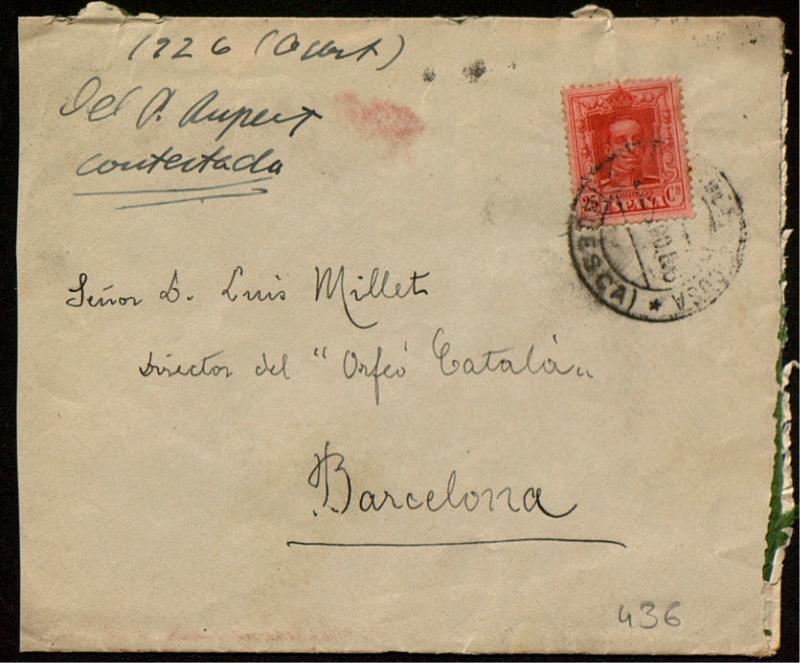 1926 (Agost)
Del P. Rupert
contestada
CORREOS
ESPAÑA
25 Cs
(HUESCA) ★
Señor D. Luis Millet
Director del "Orfeó Català"
Barcelona
436